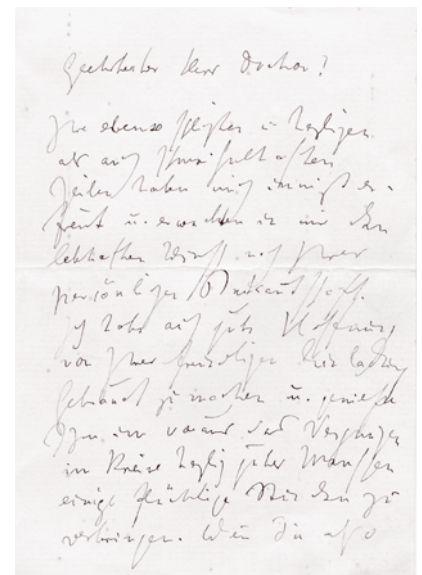 Geehrtester Herr Doctor!
Ihre ebenso u. herzlichen
als auch
Zeilen haben mich innigst er-
freut u. erwecken in mir den
lebhaften Wunsch nach Ihrer
persönlichen Bekanntschaft.
Ich habe auch gute Hoffnung,
von Ihrer freundlichen Einladung
Gebrauch zu machen u. genieße
schon im voraus das Vergnügen
im Kreise herzlich guter Menschen
einige flüchtige Stunden zu
verbringen. also